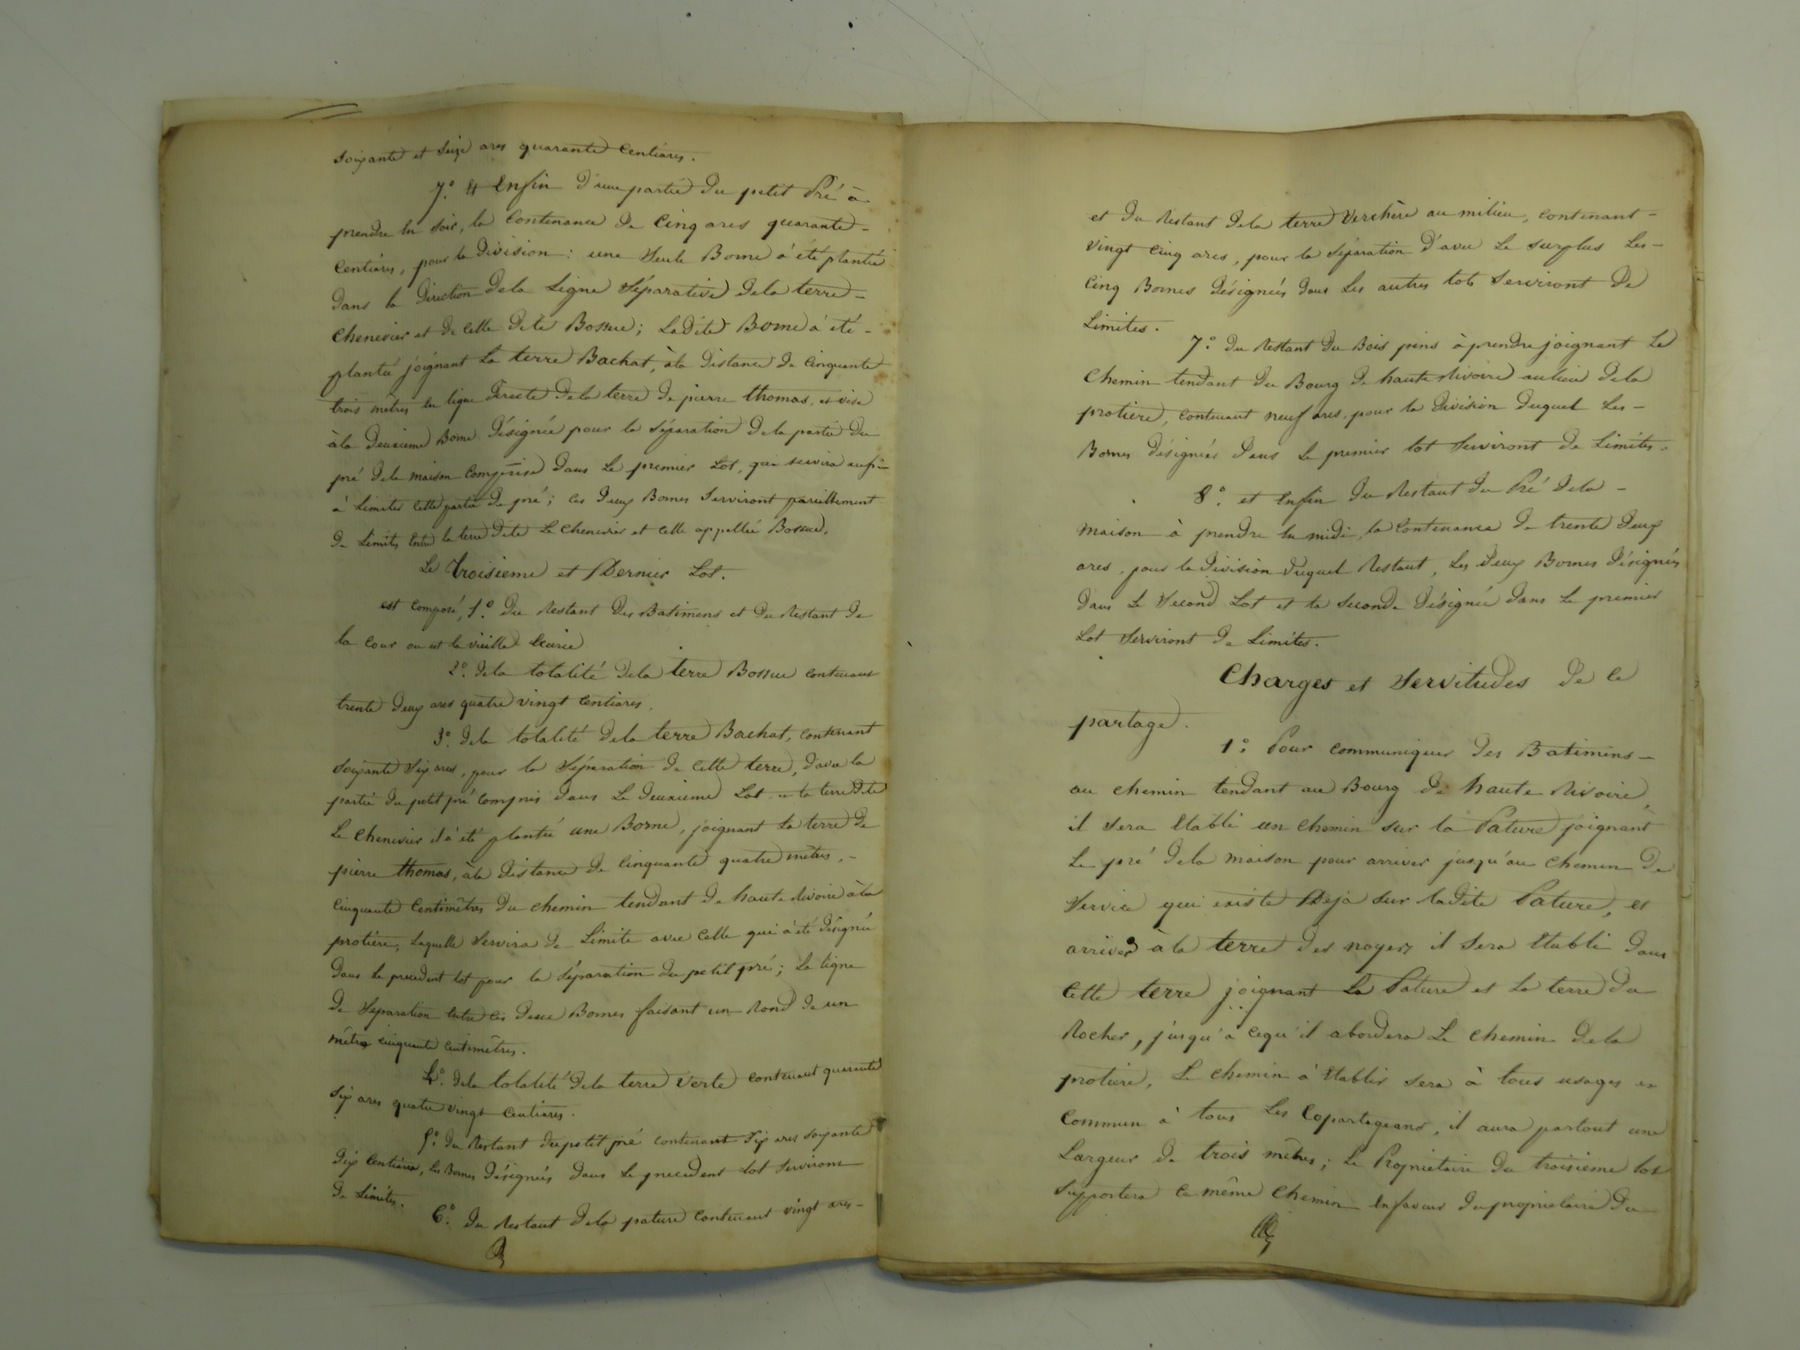 soixante et seize ares quarante centiares.
7.° Et Enfin d'une partie du petit Pré à
prendre en soir, la contenance de cinq ares quarante-
centiares, pour la division: une seule Borne a été plantée
dans la direction de la ligne séparative de la terre-
chenevier et de celle dite Bossue; Ladite Borne a été-
plantée joignant la terre Bachat, à la distance de cinquante
trois mètres en ligne directe de la terre de pierre thomas, et vise
à la deuxieme Borne désignée pour la séparation de la partie du
pré de la maison comprise dans le premier Lot, qui servira aussi
à Limiter cette partie de pré; ces deux Bornes serviront pareillement
de Limites entre la terre dite Le Chenevier et celle appellée Bossue.
Le troisieme et Dernier Lot.
est composé, 1.° du restant des Batimens et du restant de
la cour ou est la vieille Ecurie
2.° de la totalité de la terre Bossue contenant
trente deux ares quatre vingt centiares.
3.° de la totalité de la terre Bachat, contenant
soixante six ares, pour la séparation de cette terre, d'avec la
partie du petit pré compris dans Le deuxieme Lot et la terre dite
Le Chenevier il a été plantée une Borne, joignant la terre de
pierre thomas, à la distance de cinquante quatre mètres,-
cinquante centimètres du chemin tendant de haute rivoire à la
protière, Laquelle servira de Limite avec celle qui a été désignée
dans le precedent lot pour la séparation du petit pré; la ligne
de séparation entre ces deux Bornes faisant un Rond de un
mètre cinquante centimètres.
4.° de la totalité de la terre verte contenant quarante
six ares quatre vingt centiares.
5.° du Restant du petit pré contenant six ares soixante
dix centiares, les Bornes désignées dans le precedent lot serviront
de Limites.
6.° du Restant de la pature contenant vingt ares-
et du Restant de la terre verchère au milieu, contenant-
vingt cinq ares, pour la séparation d'avec Le surplus Les-
cinq Bornes désignées dans Les autres lots serviront de
Limites.
7.° du Restant du Bois pins à prendre joignant Le
chemin tendant du Bourg de haute Rivoire au lieu de la
protière, contenant neuf ares, pour la division duquel Les-
Bornes désignées dans Le premier lot serviront de Limites.
8.° et Enfin du Restant du Pré de la-
maison à prendre en midi, la contenance de trente deux
ares, pour la division duquel Restant, Les deux Bornes désignées
dans Le second Lot et la seconde désignée dans Le premier
Lot serviront de Limites.
Charges et servitudes de ce
partage.
1.° Pour communiquer des Batimens-
au chemin tendant au Bourg de haute Rivoire,
il sera Etabli un chemin sur la Pature joignant
Le pré de la maison pour arriver jusqu'au chemin de
service qui existe Déjà sur ladite Pature, et
arriver à la terre des noyers il sera Etabli dans
Cette terre joignant La Pature et La terre du
Rocher, jusqu'à ce qu'il abordera Le chemin de la
protière, Le chemin à Etablir sera à tous usages et
commun à tous Les Copartageans, il aura partout une
Largeur de trois mètres; Le Propriétaire du troisieme lot
supportera ce même chemin en faveur du propriétaire du